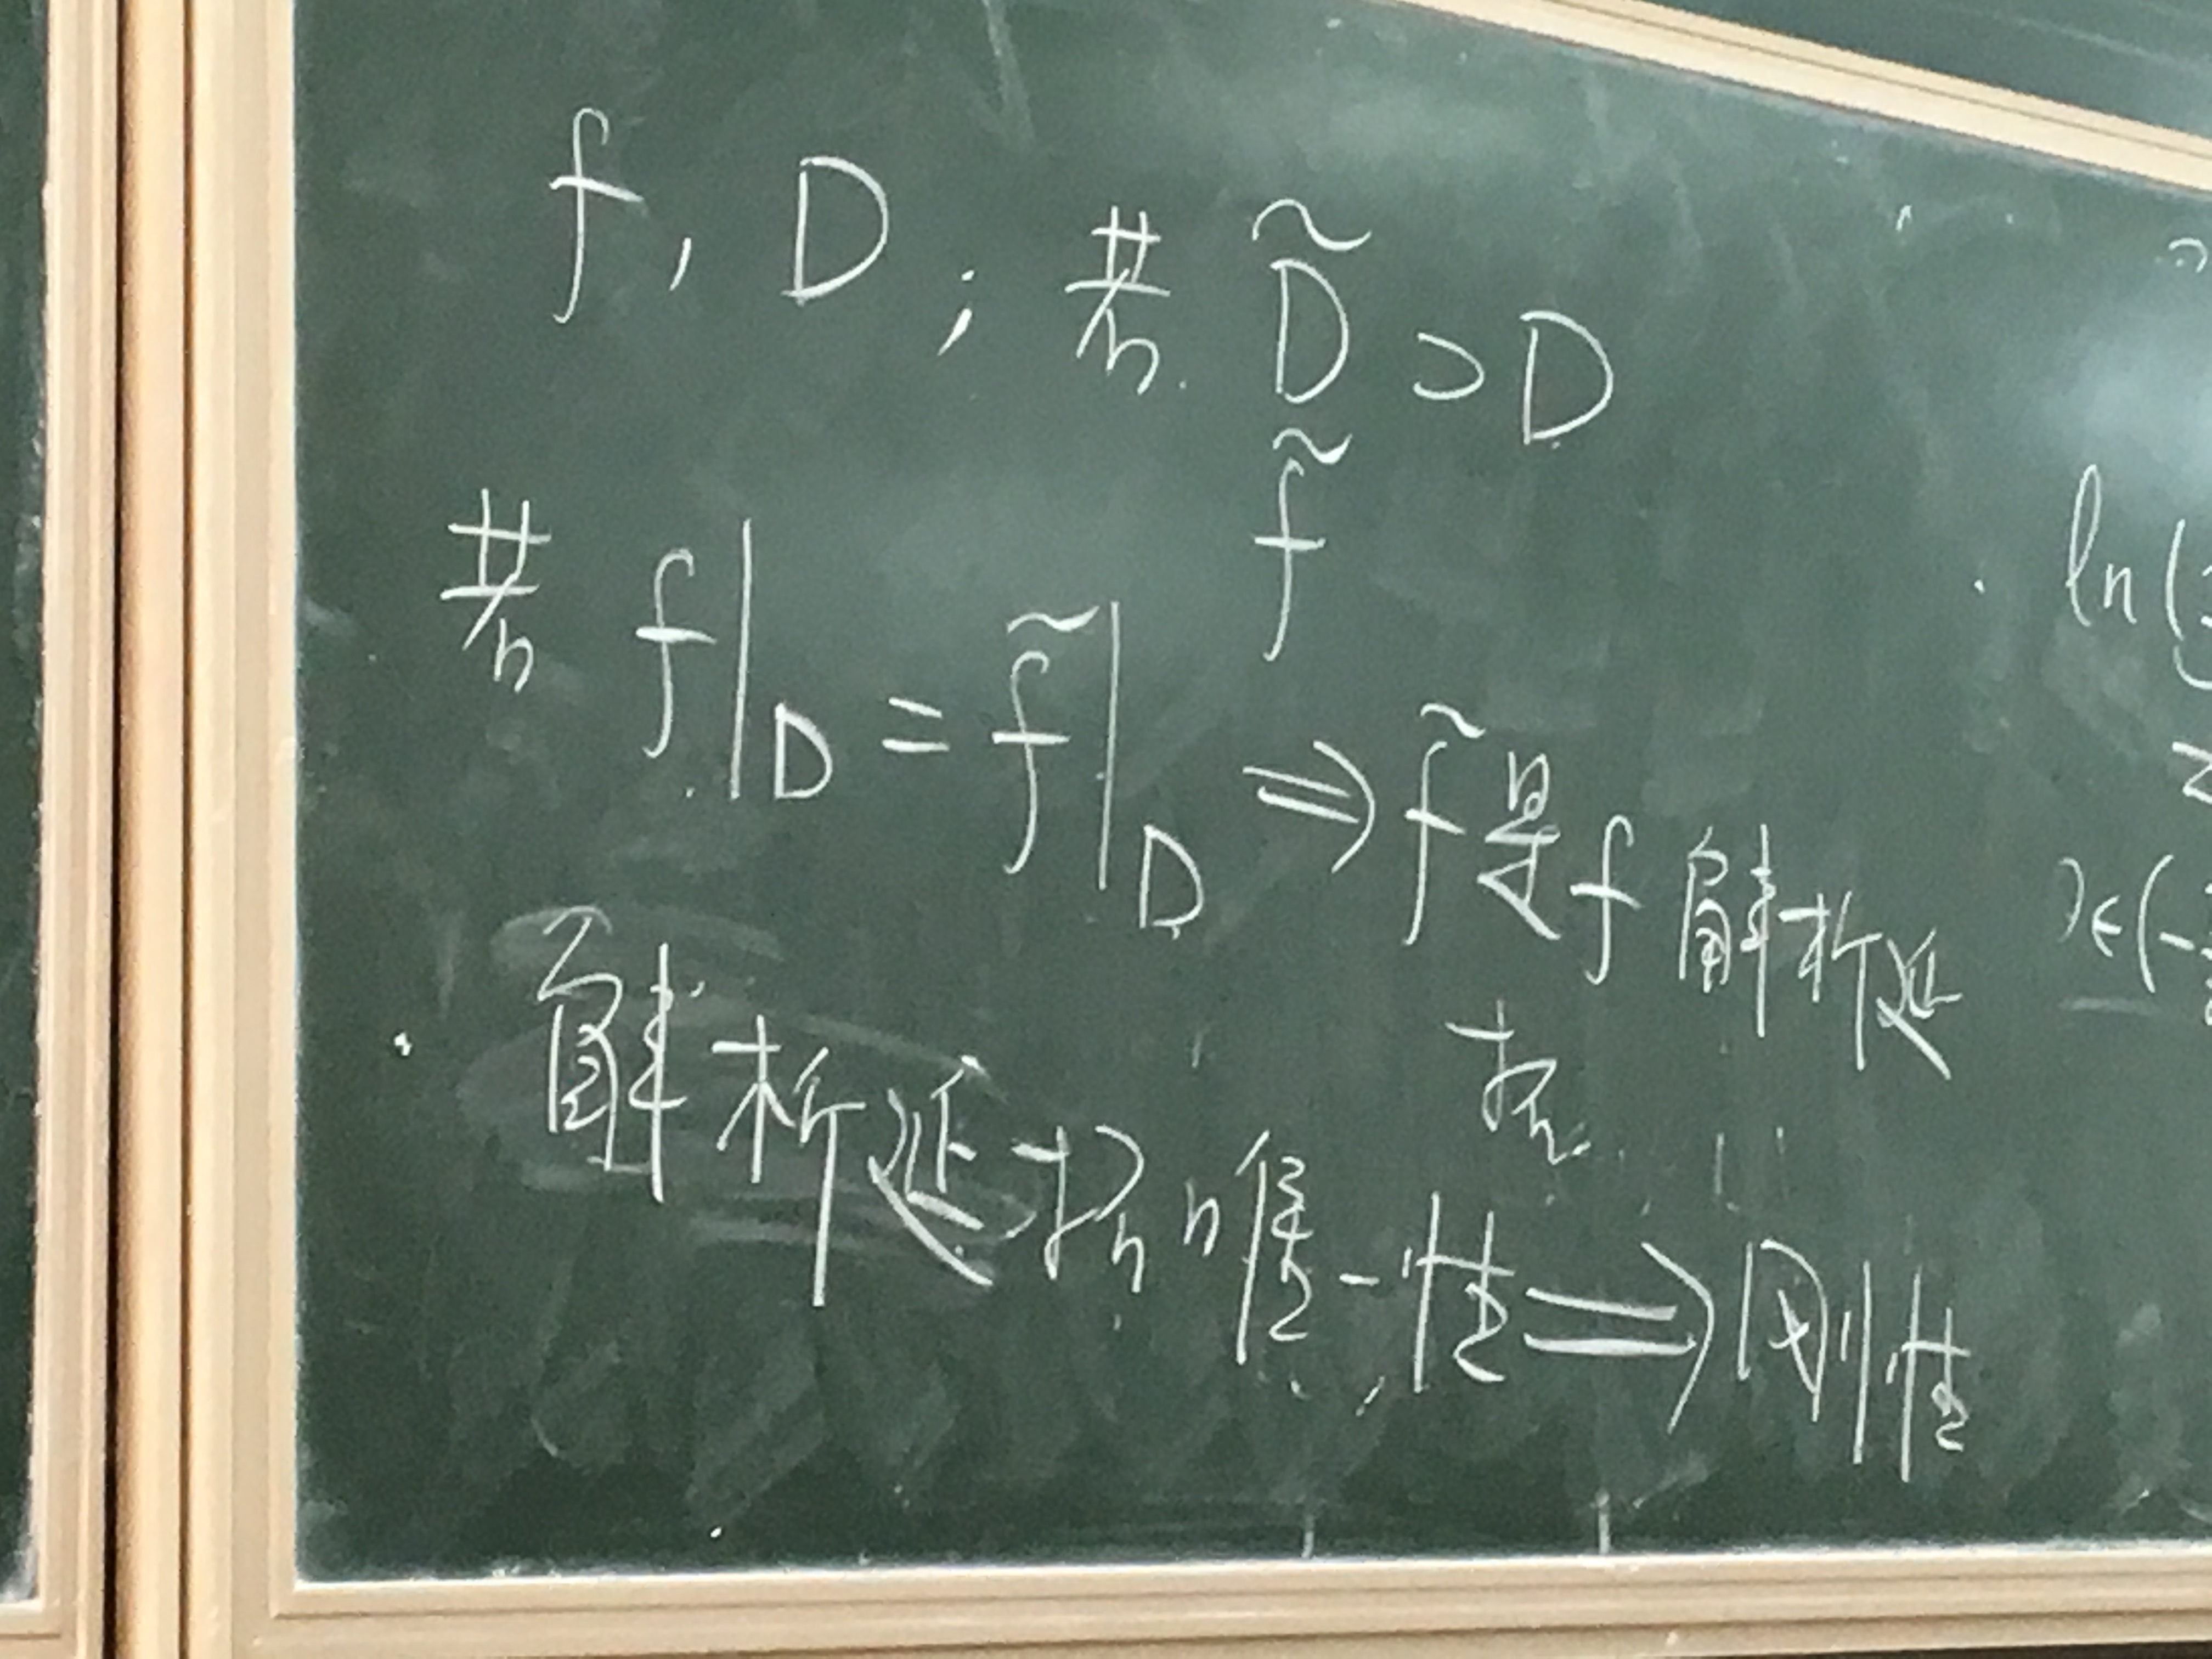 f, D ; 若 D̃ ⊃ D
f̃
若 f|_D = f̃|_D ⇒ f̃是f 解析延
拓
解析延拓的唯一性 ⇒ 刚性
ln(